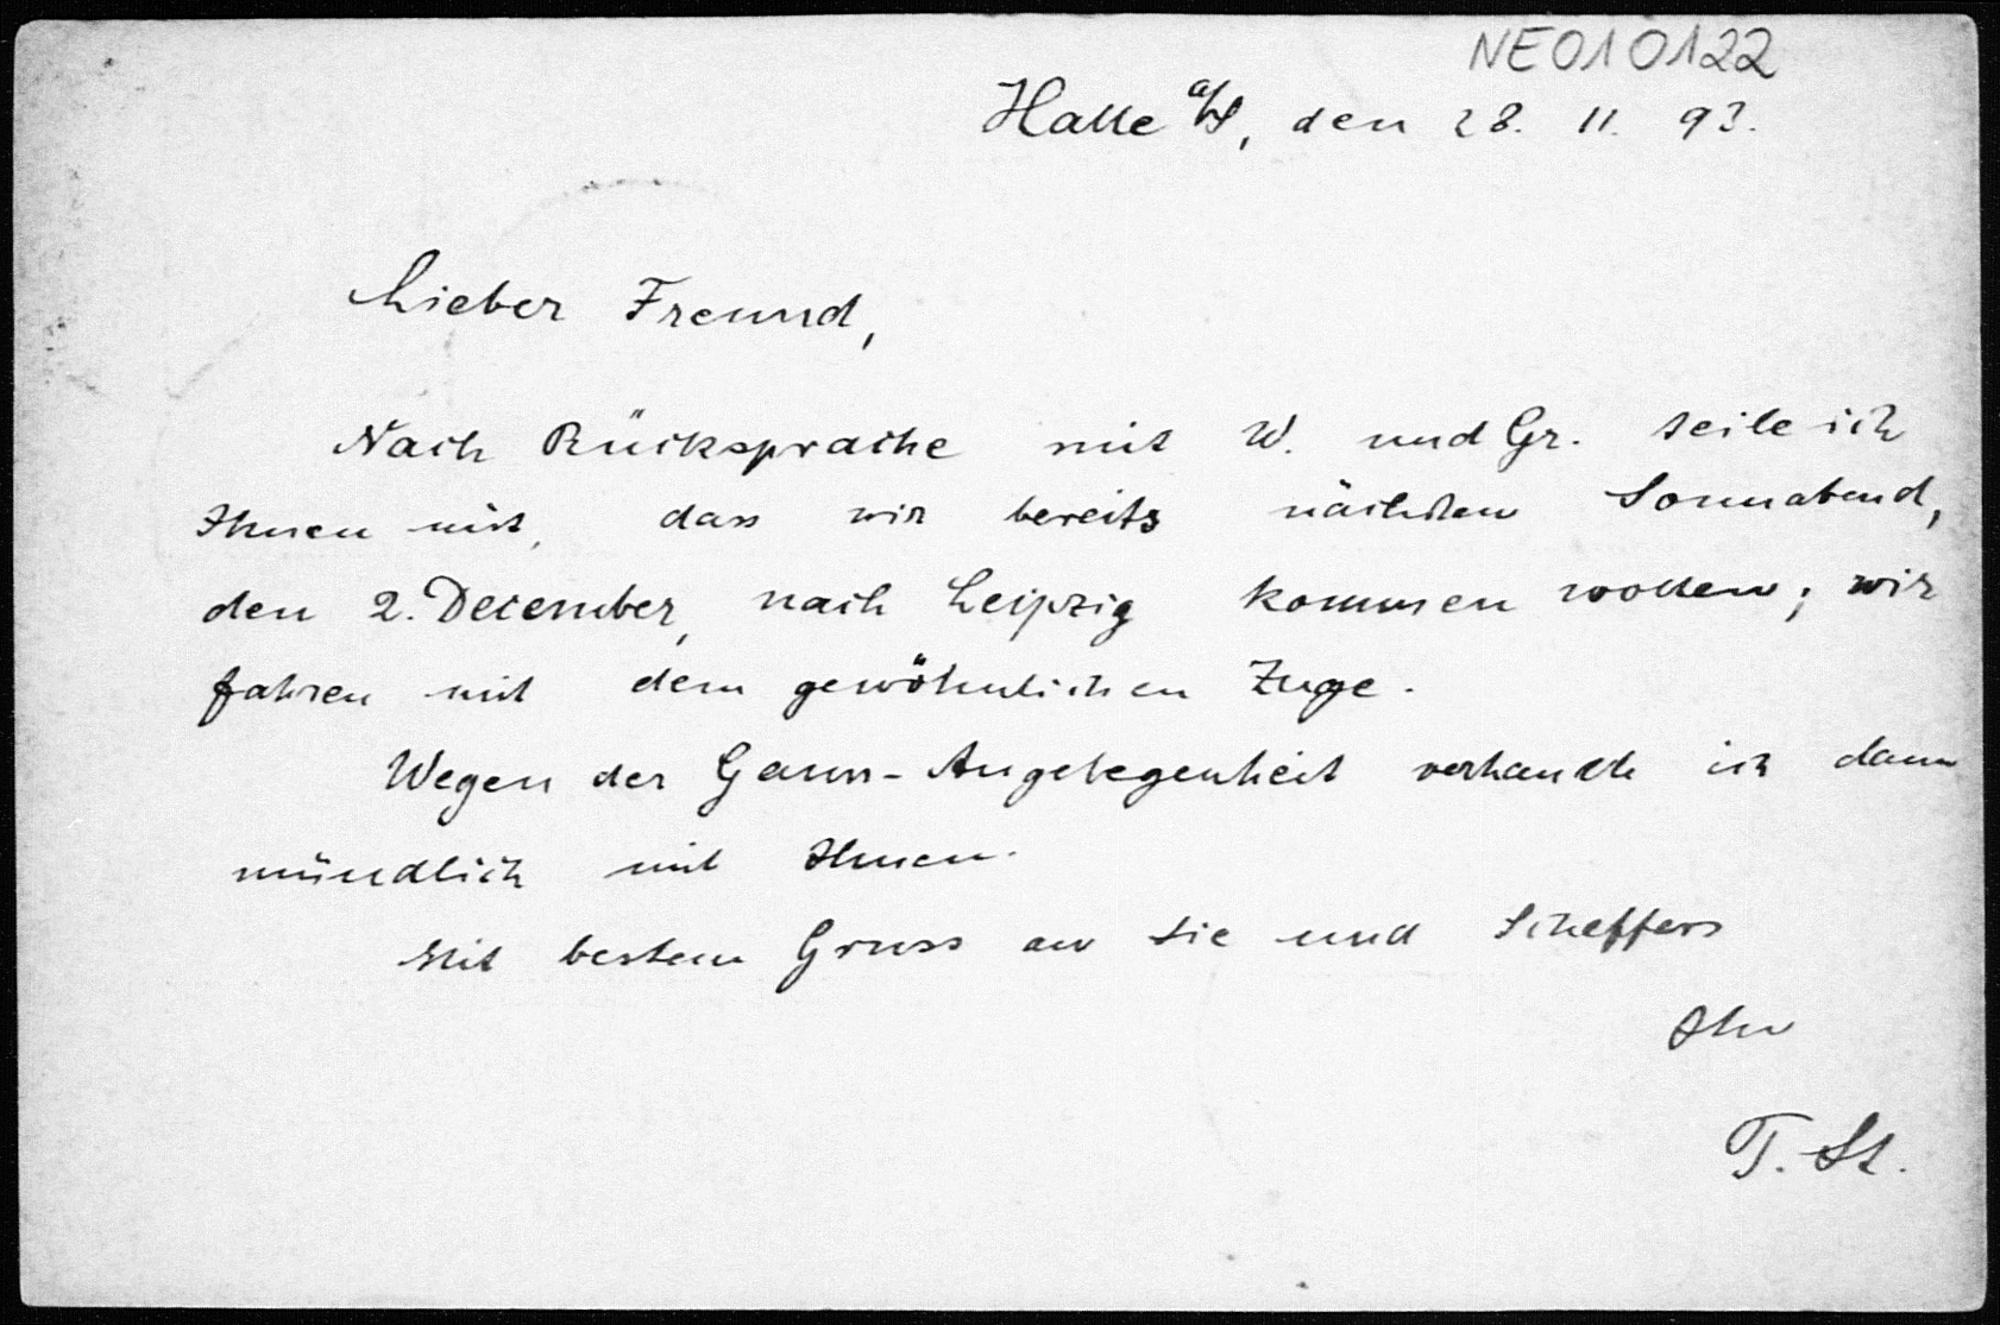 NE010122
Halle a/S, den 28. 11. 93.
Lieber Freund,
Nach Rücksprache mit W. und Gr. teile ich
Ihnen mit, dass wir bereits nächsten Sonnabend,
den 2. December, nach Leipzig kommen wollen; wir
fahren mit dem gewöhnlichen Zuge.
Wegen der Gauss-Angelegenheit verhandle ich dann
mündlich mit Ihnen.
Mit bestem Gruss an Sie und Scheffers
Ihr
P. St.